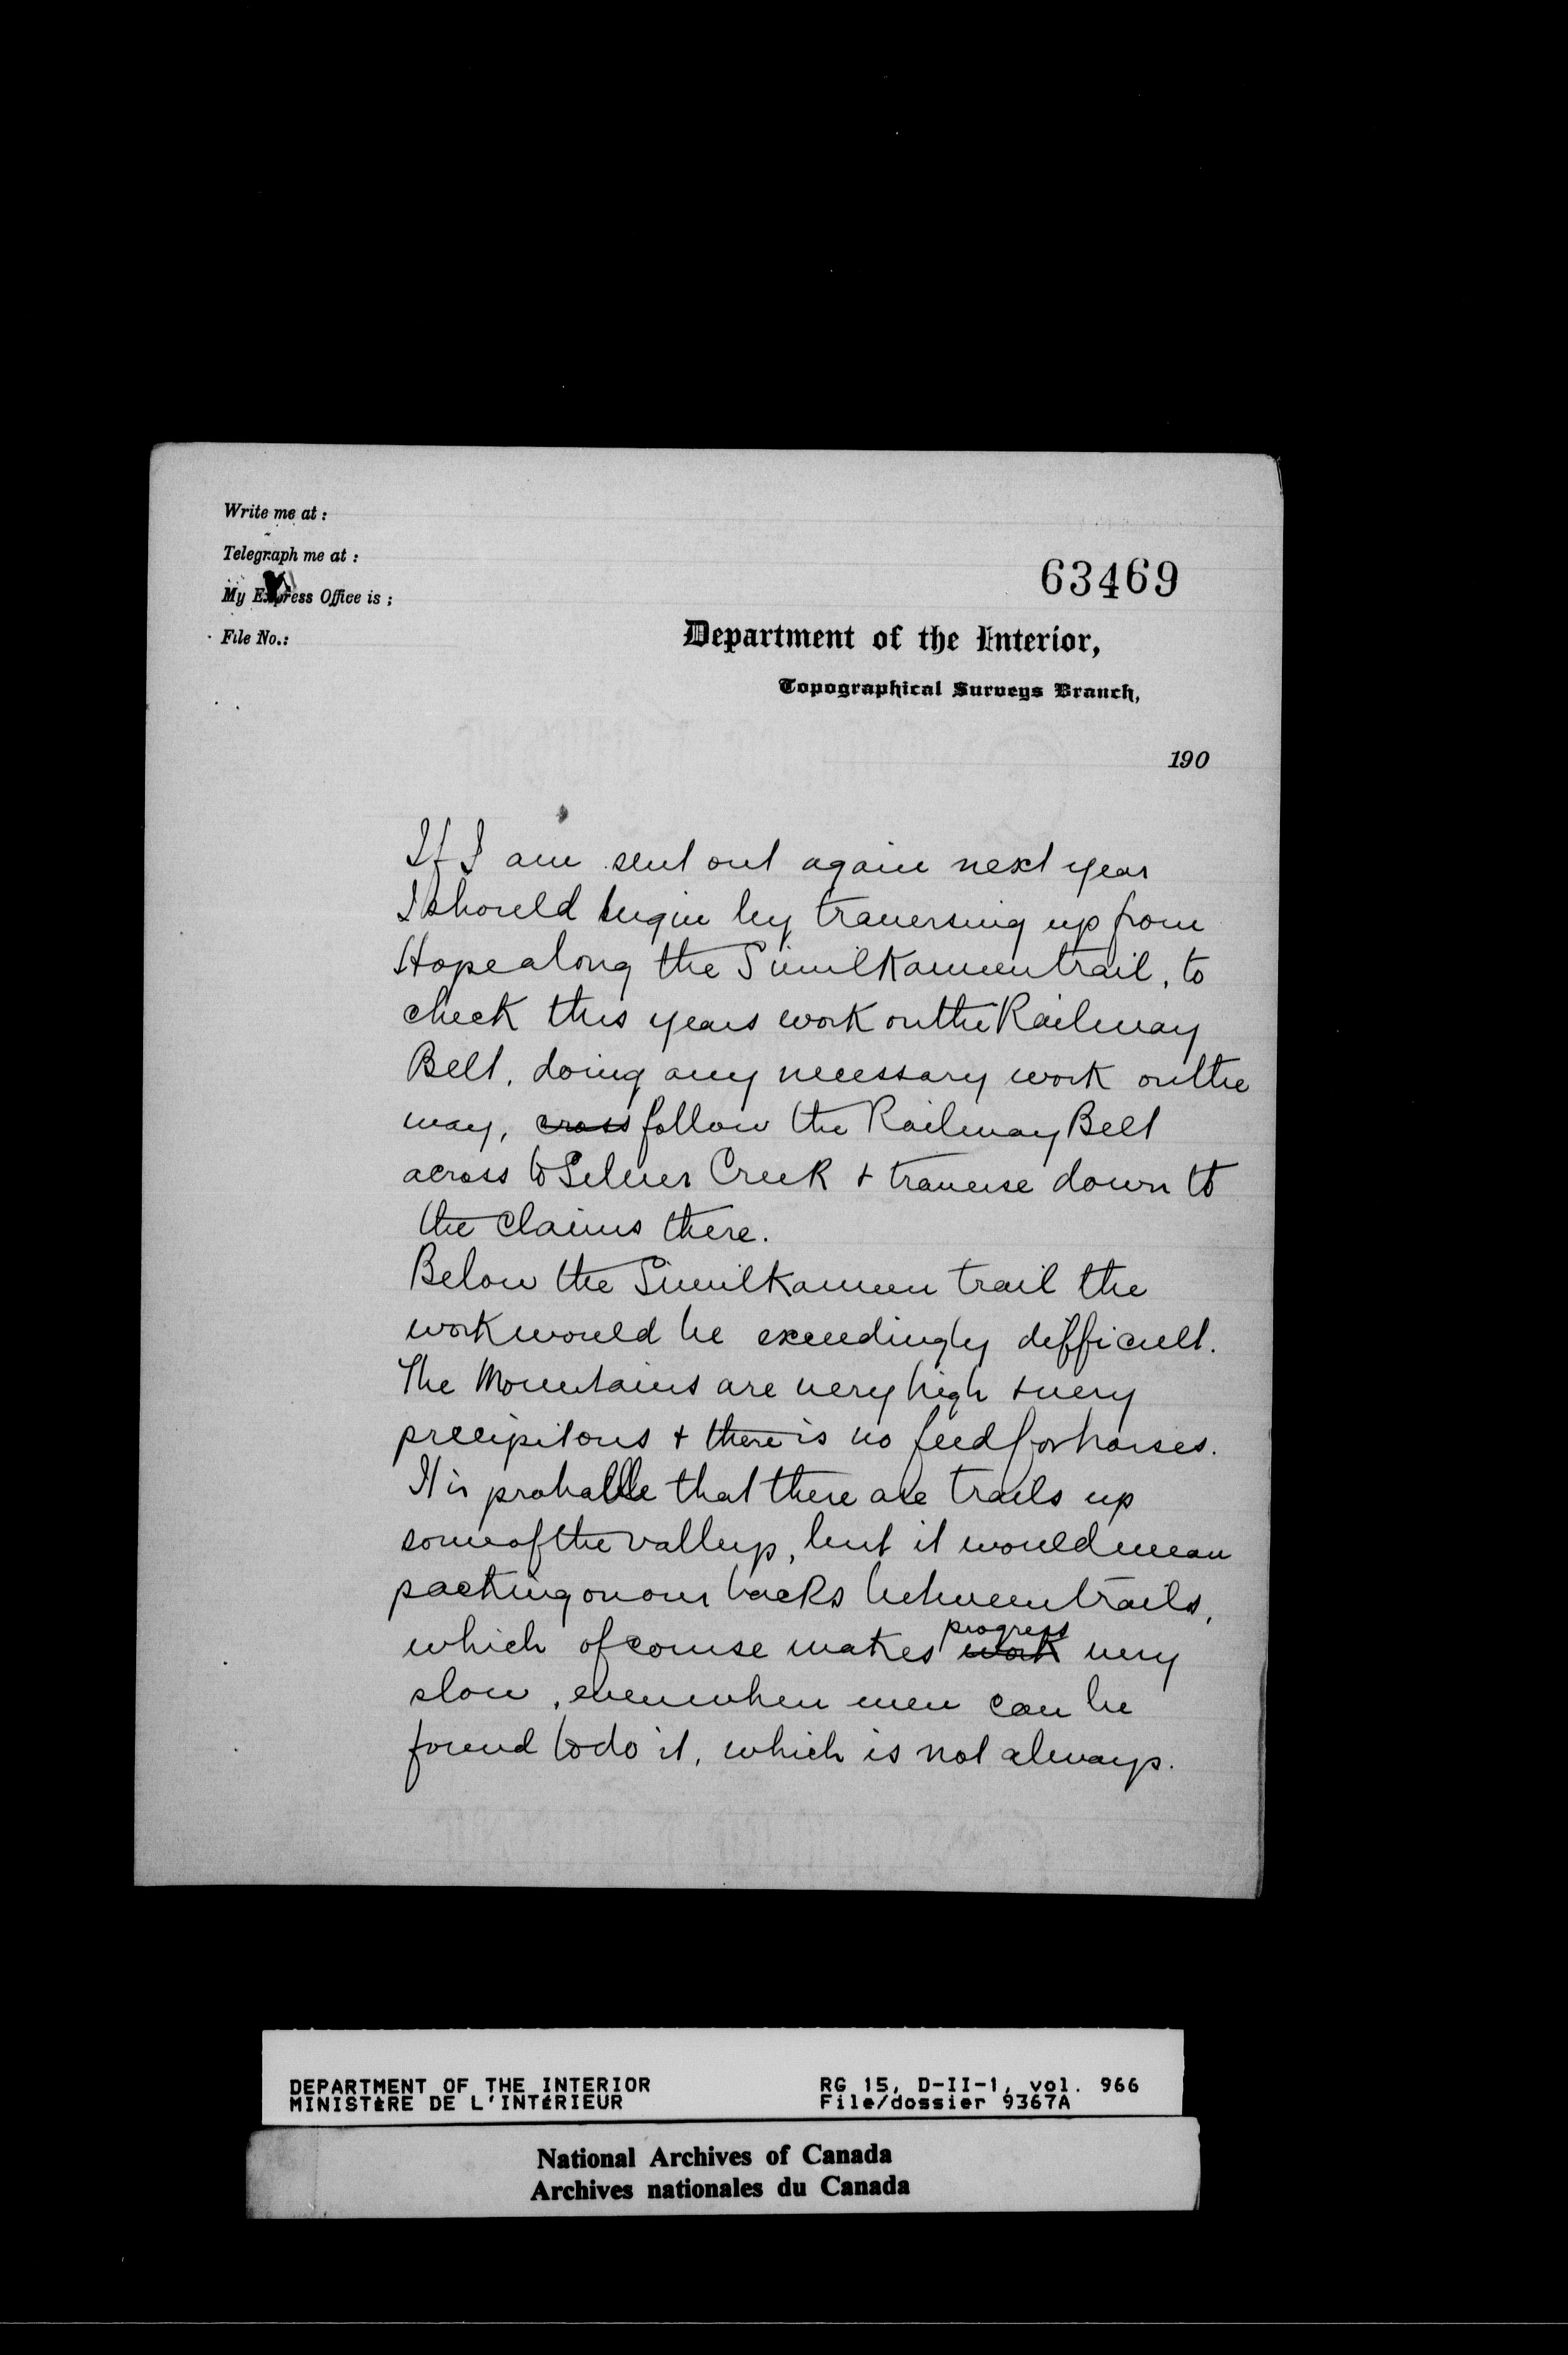 Write me at :
Telegraph me at :
My Express Office is ;
File No.:
63469
Department of the Interior,
Topographical Surveys Branch,
190
If I am sent out again next year
I should begin by traversing up from
Hope along the Similkameen trail, to
check this years work on the Railway
Belt, doing any necessary work on the
way, cross follow the Railway Belt
across to Silver Creek + traverse down to
the claims there.
Below the Similkameen trail the
work would be exceedingly difficult.
The Mountains are very high + very
precipitous + there is no feed for horses.
It is probable that there are trails up
some of the valleys, but it would mean
packing on our backs between trails,
which of course makes work progress very
slow, even when men can be
found to do it, which is not always.
DEPARTMENT OF THE INTERIOR RG 15, D-II-1, vol. 966
MINISTÈRE DE L'INTÉRIEUR File/dossier 9367A
National Archives of Canada
Archives nationales du Canada